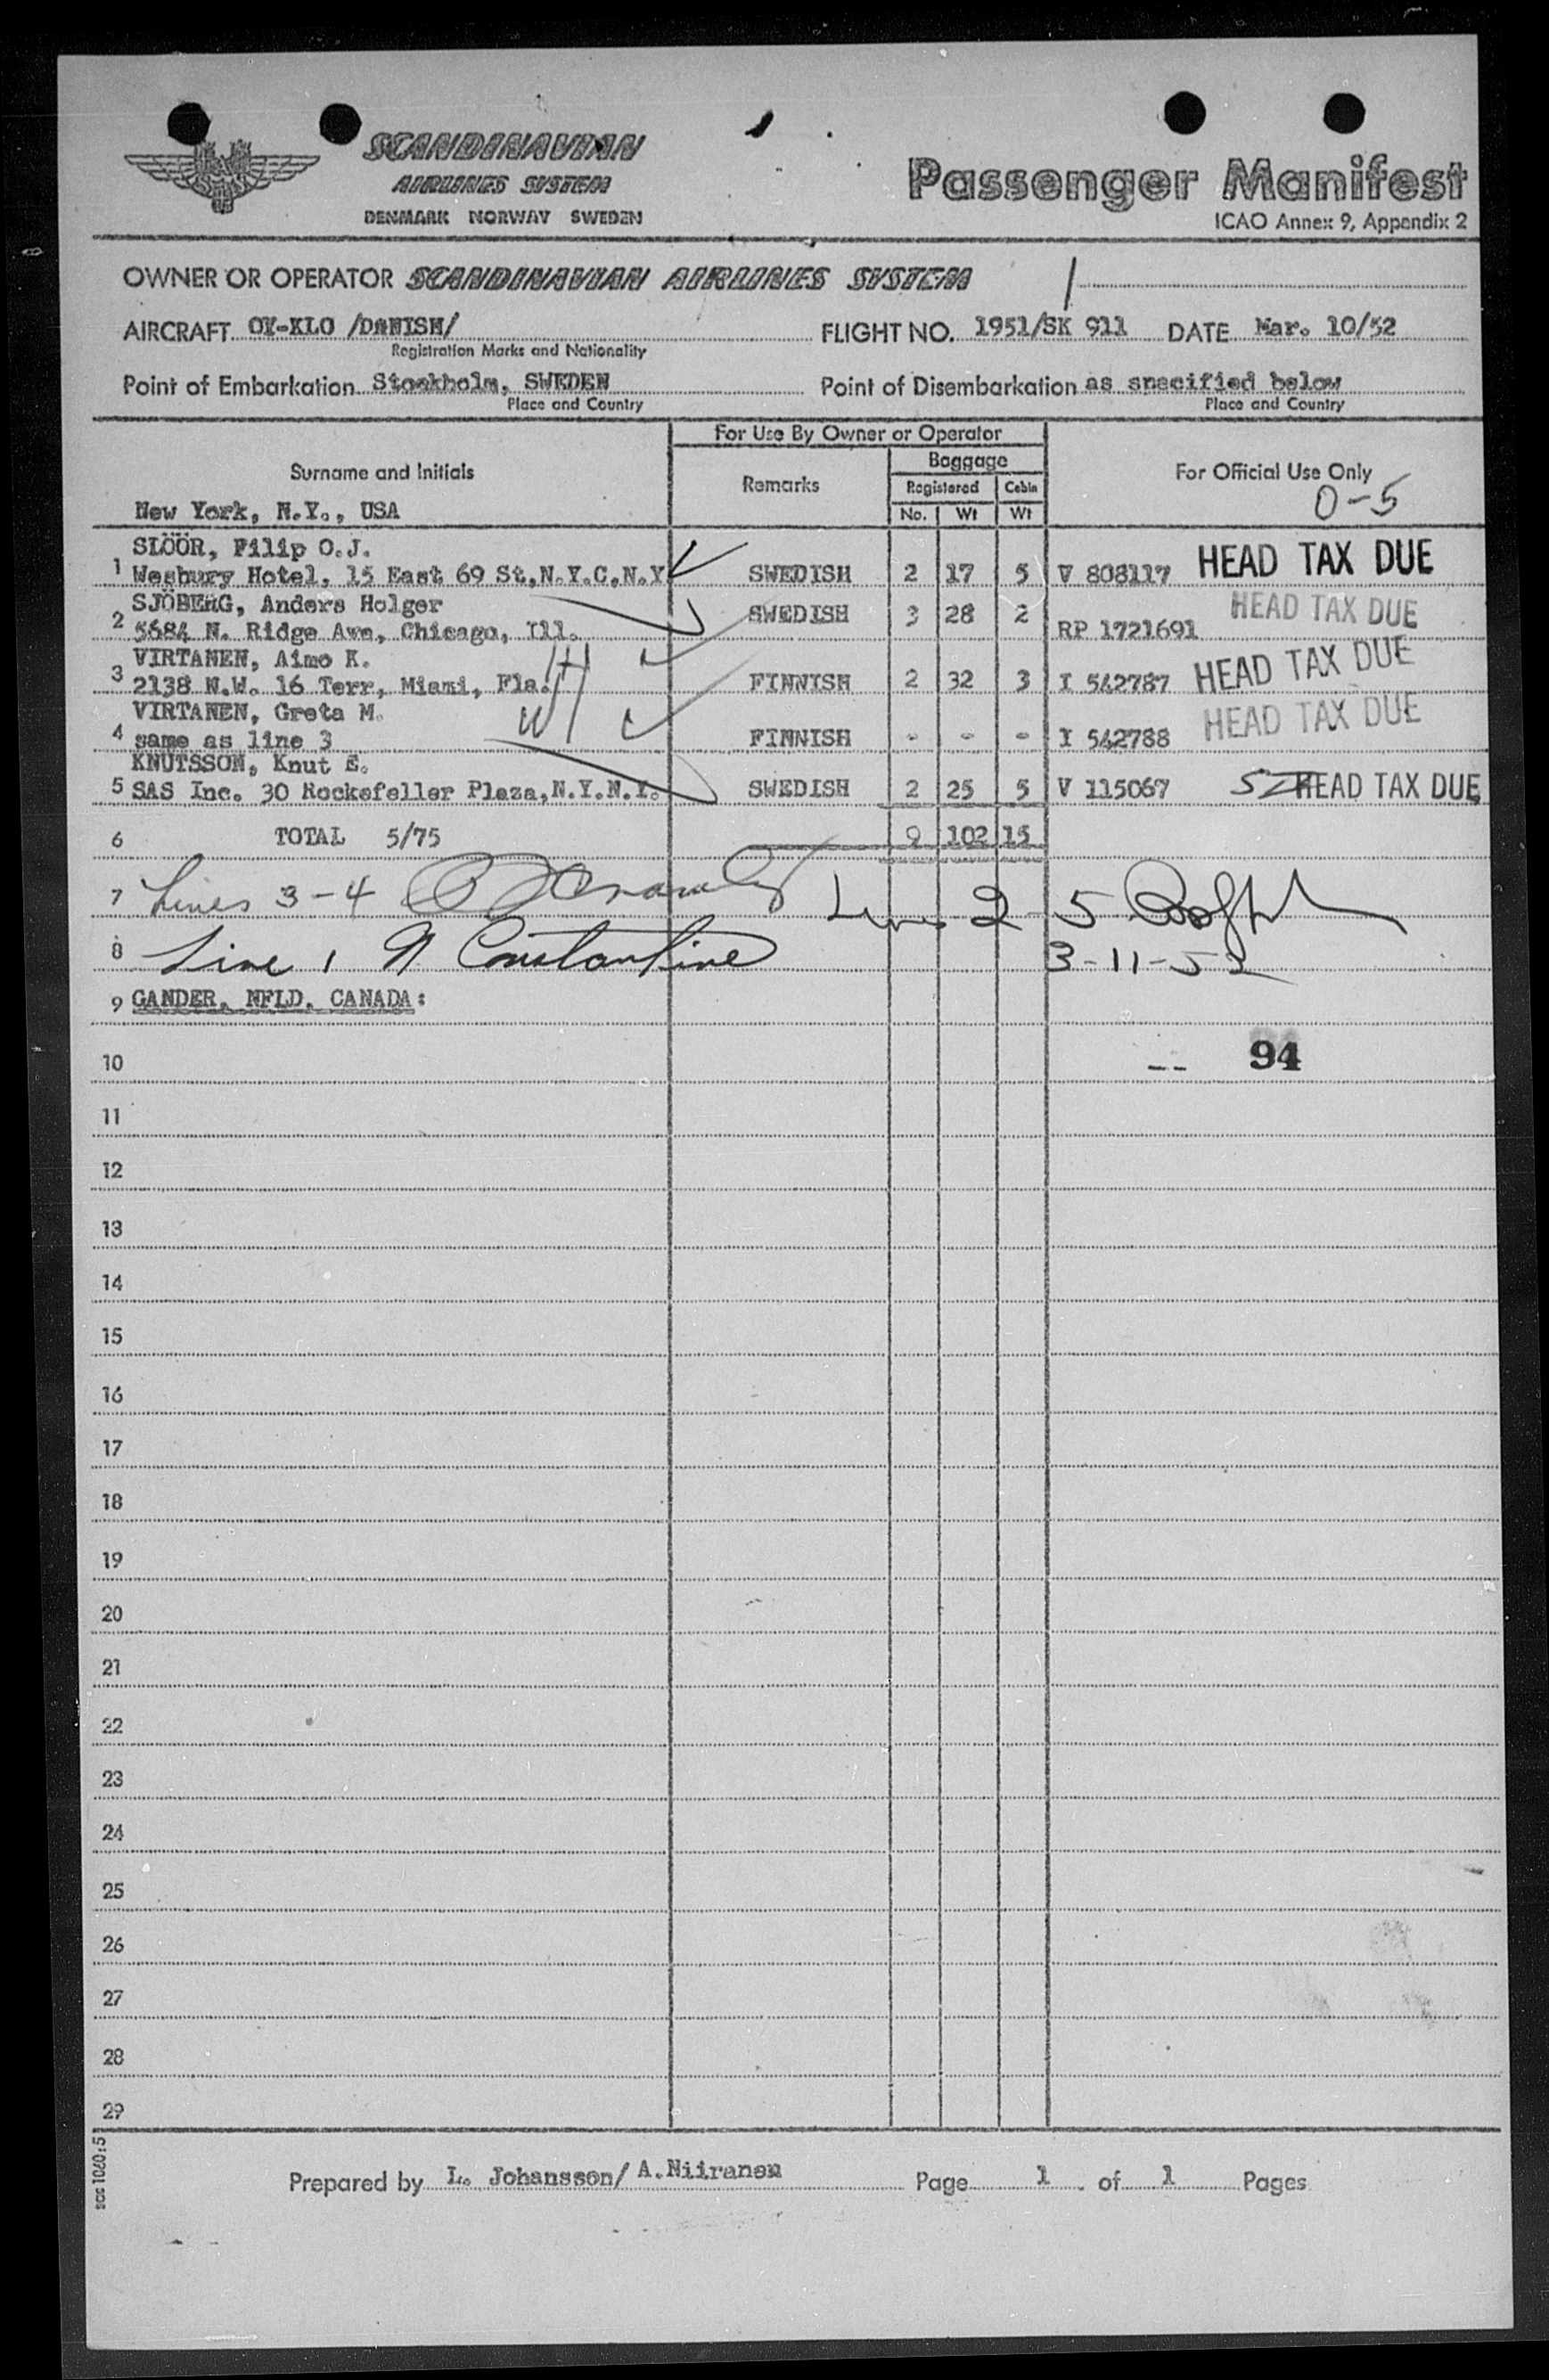 SCANDINAVIAN
AIRLINES SYSTEM
DENMARK NORWAY SWEDEN
Passenger Manifest
ICAO Annex 9, Appendix 2
OWNER OR OPERATOR SCANDINAVIAN AIRLINES SYSTEM
AIRCRAFT OY-KLO /DANISH/ FLIGHT NO. 1951/SK 911 DATE Mar. 10/52
Registration Marks and Nationality
Point of Embarkation Stockholm, SWEDEN Point of Disembarkation as specified below
Place and Country Place and Country
For Use By Owner or Operator
Surname and Initials Remarks Baggage For Official Use Only
Registered Cabin
0-5
New York, N.Y., USA No. Wt Wt
SLÖÖR, Filip O.J.
1 Wesbury Hotel, 15 East 69 St,N.Y.C,N.Y SWEDISH 2 17 5 V 808117 HEAD TAX DUE
SJÖBERG, Anders Holger
2 5684 N. Ridge Ave, Chicago, Ill. SWEDISH 3 28 2 RP 1721691 HEAD TAX DUE
VIRTANEN, Aimo K.
3 2138 N.W. 16 Terr, Miami, Fla. FINNISH 2 32 3 I 542787 HEAD TAX DUE
VIRTANEN, Greta M.
4 same as line 3 FINNISH - - - I 542788 HEAD TAX DUE
KNUTSSON, Knut E.
5 SAS Inc. 30 Rockefeller Plaza,N.Y.N.Y. SWEDISH 2 25 5 V 115067 HEAD TAX DUE
6 TOTAL 5/75 9 102 15
7 Lines 3-4 Lines 2 5
8 Line 1 N Constantine 3-11-52
9 GANDER, NFLD, CANADA:
10 -- 94
11
12
13
14
15
16
17
18
19
20
21
22
23
24
25
26
27
28
29
sas 1060:5
Prepared by L. Johansson/ A.Niiranen Page 1 of 1 Pages